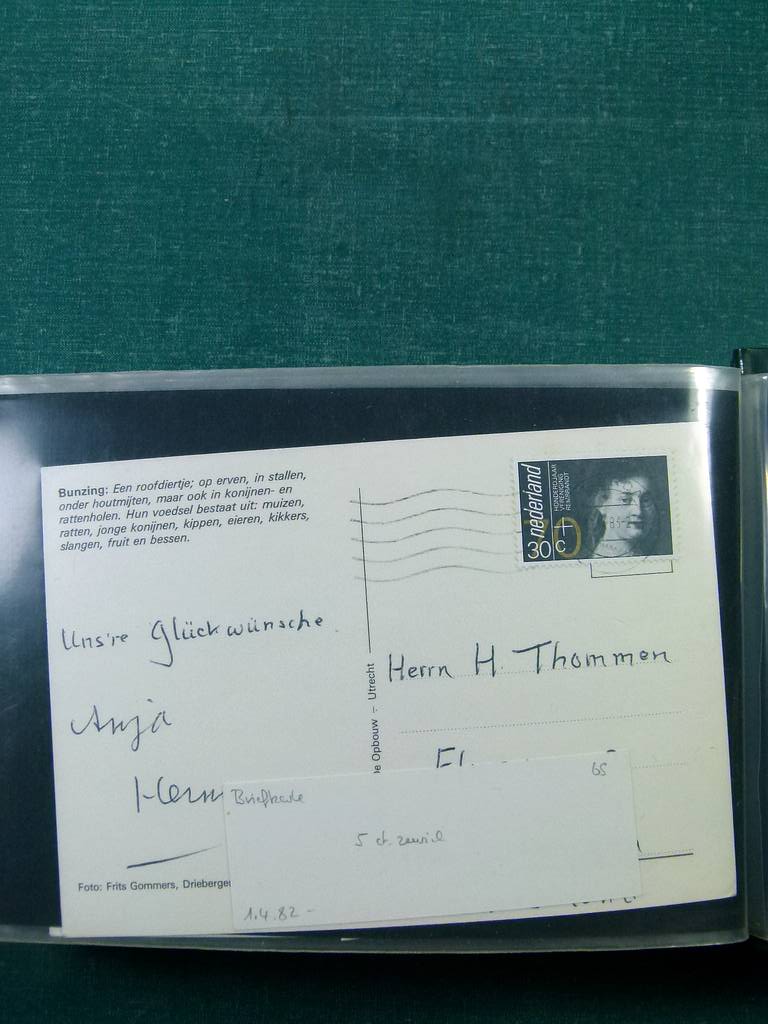 Bunzing: Een roofdiertje; op erven, in stallen,
onder houtmijten, maar ook in konijnen- en
rattenholen. Hun voedsel bestaat uit: muizen,
ratten, jonge konijnen, kippen, eieren, kikkers,
slangen, fruit en bessen.
nederland
HONDERDJAAR
VERENIGING
REMBRANDT
70
+
30 c
Uns're Glückwünsche.
Anja
Herrn H. Thommen
Opbouw – Utrecht
Briefkarte
65
5 ct. zuviel
1.4.82 -
Foto: Frits Gommers,